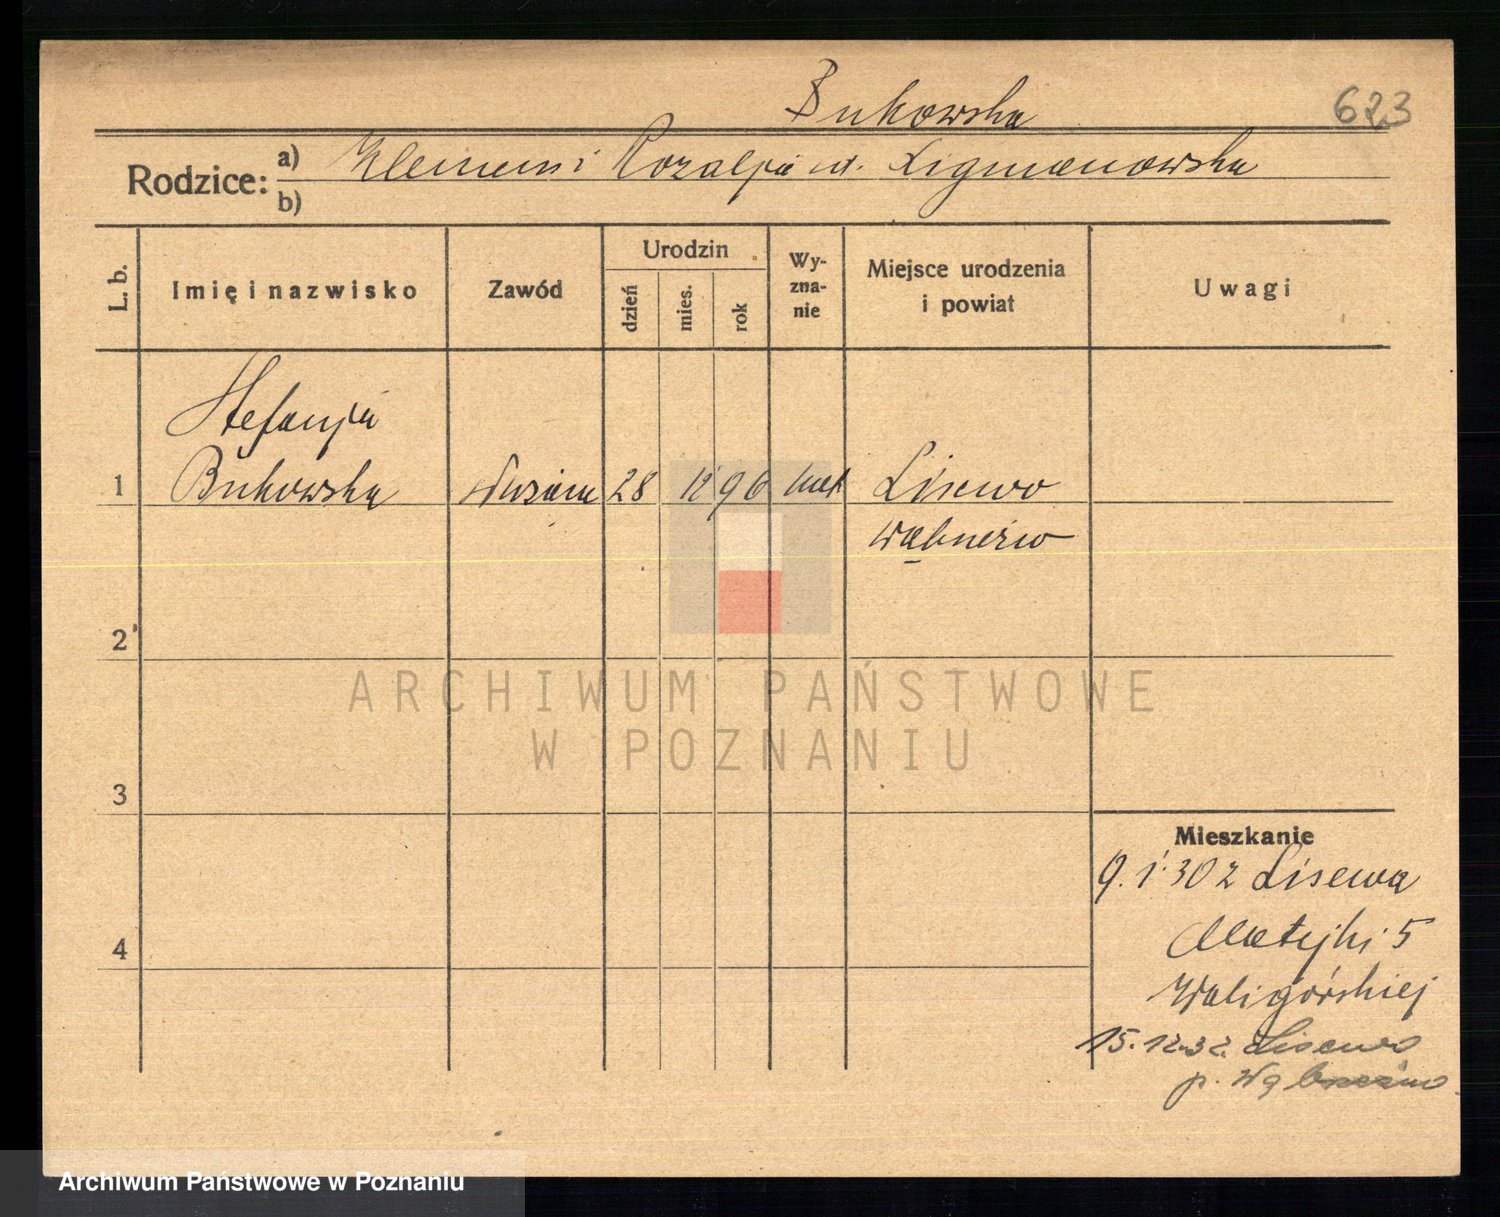 Bukowska
623
Rodzice: a) Klemens i Rozalja ur. Ligmanowska
b)
L. b.
Imię i nazwisko
Zawód
Urodzin
dzień
mies.
rok
Wy-
zna-
nie
Miejsce urodzenia
i powiat
Uwagi
Stefanja
1 Bukowska 28 12 96 kat Lisewo
Wąbrzeźno
2
3
4
ARCHIWUM PAŃSTWOWE
W POZNANIU
Mieszkanie
9. 1. 30 z Lisewa
Matejki 5
Waligórskiej
15. 12. 32. Lisewo
p. Wąbrzeźno
Archiwum Państwowe w Poznaniu